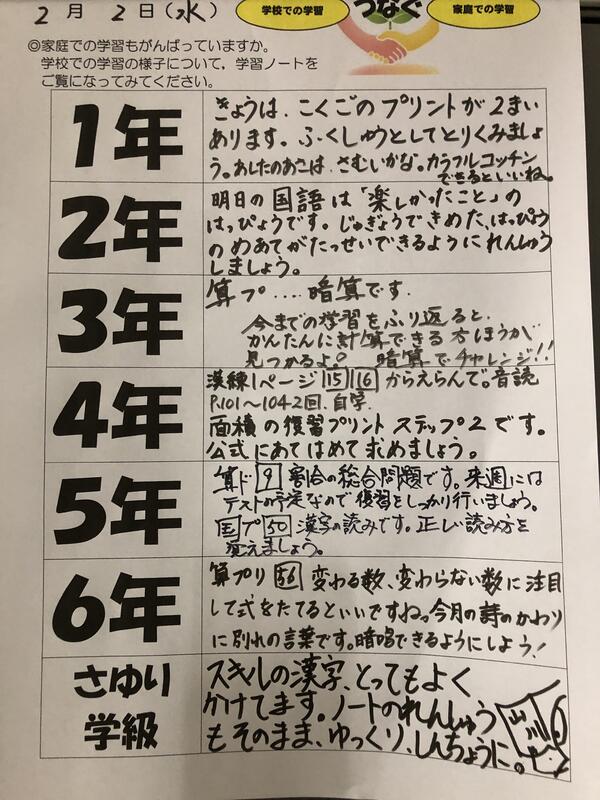 2月 2日(水)
学校での学習
つなぐ
家庭での学習
◎家庭での学習もがんばっていますか。
学校での学習の様子について,学習ノートを
ご覧になってみてください。
1年
きょうは、こくごのプリントが2まい
あります。ふくしゅうとしてとりくみましょ
う。あしたのあさは、さむいかな。カラフルコッチン
できるといいね。
2年
明日の国語は「楽しかったこと」の
はっぴょうです。じゅぎょうできめた、はっぴょう
のめあてがたっせいできるようにれんしゅう
しましょう。
3年
算プ....暗算です.
今までの学習をふり返ると、
かんたんに計算できる方ほうが
見つかるよ。 暗算でチャレンジ!!
4年
漢練1ページ 115 116 からえらんで。音読
P.101〜104-2回.自学.
面積の復習プリントステップ2です。
公式にあてはめて求めましょう。
5年
算ド 9 割合の総合問題です。来週には
テストの予定なので復習をしっかり行いましょう。
国プ 50 漢字の読みです。正しい読み方を
覚えましょう。
6年
算プリ 56 変わる数、変わらない数に注目
して式をたてるといいですねっ今月の詩のかわり
に別れの言葉です。暗唱できるようにしよう!
さゆり
学級
スキルの漢字、とってもよく
かけてます。ノートのれんしゅう
もそのまま、ゆっくり、しんちょうに。